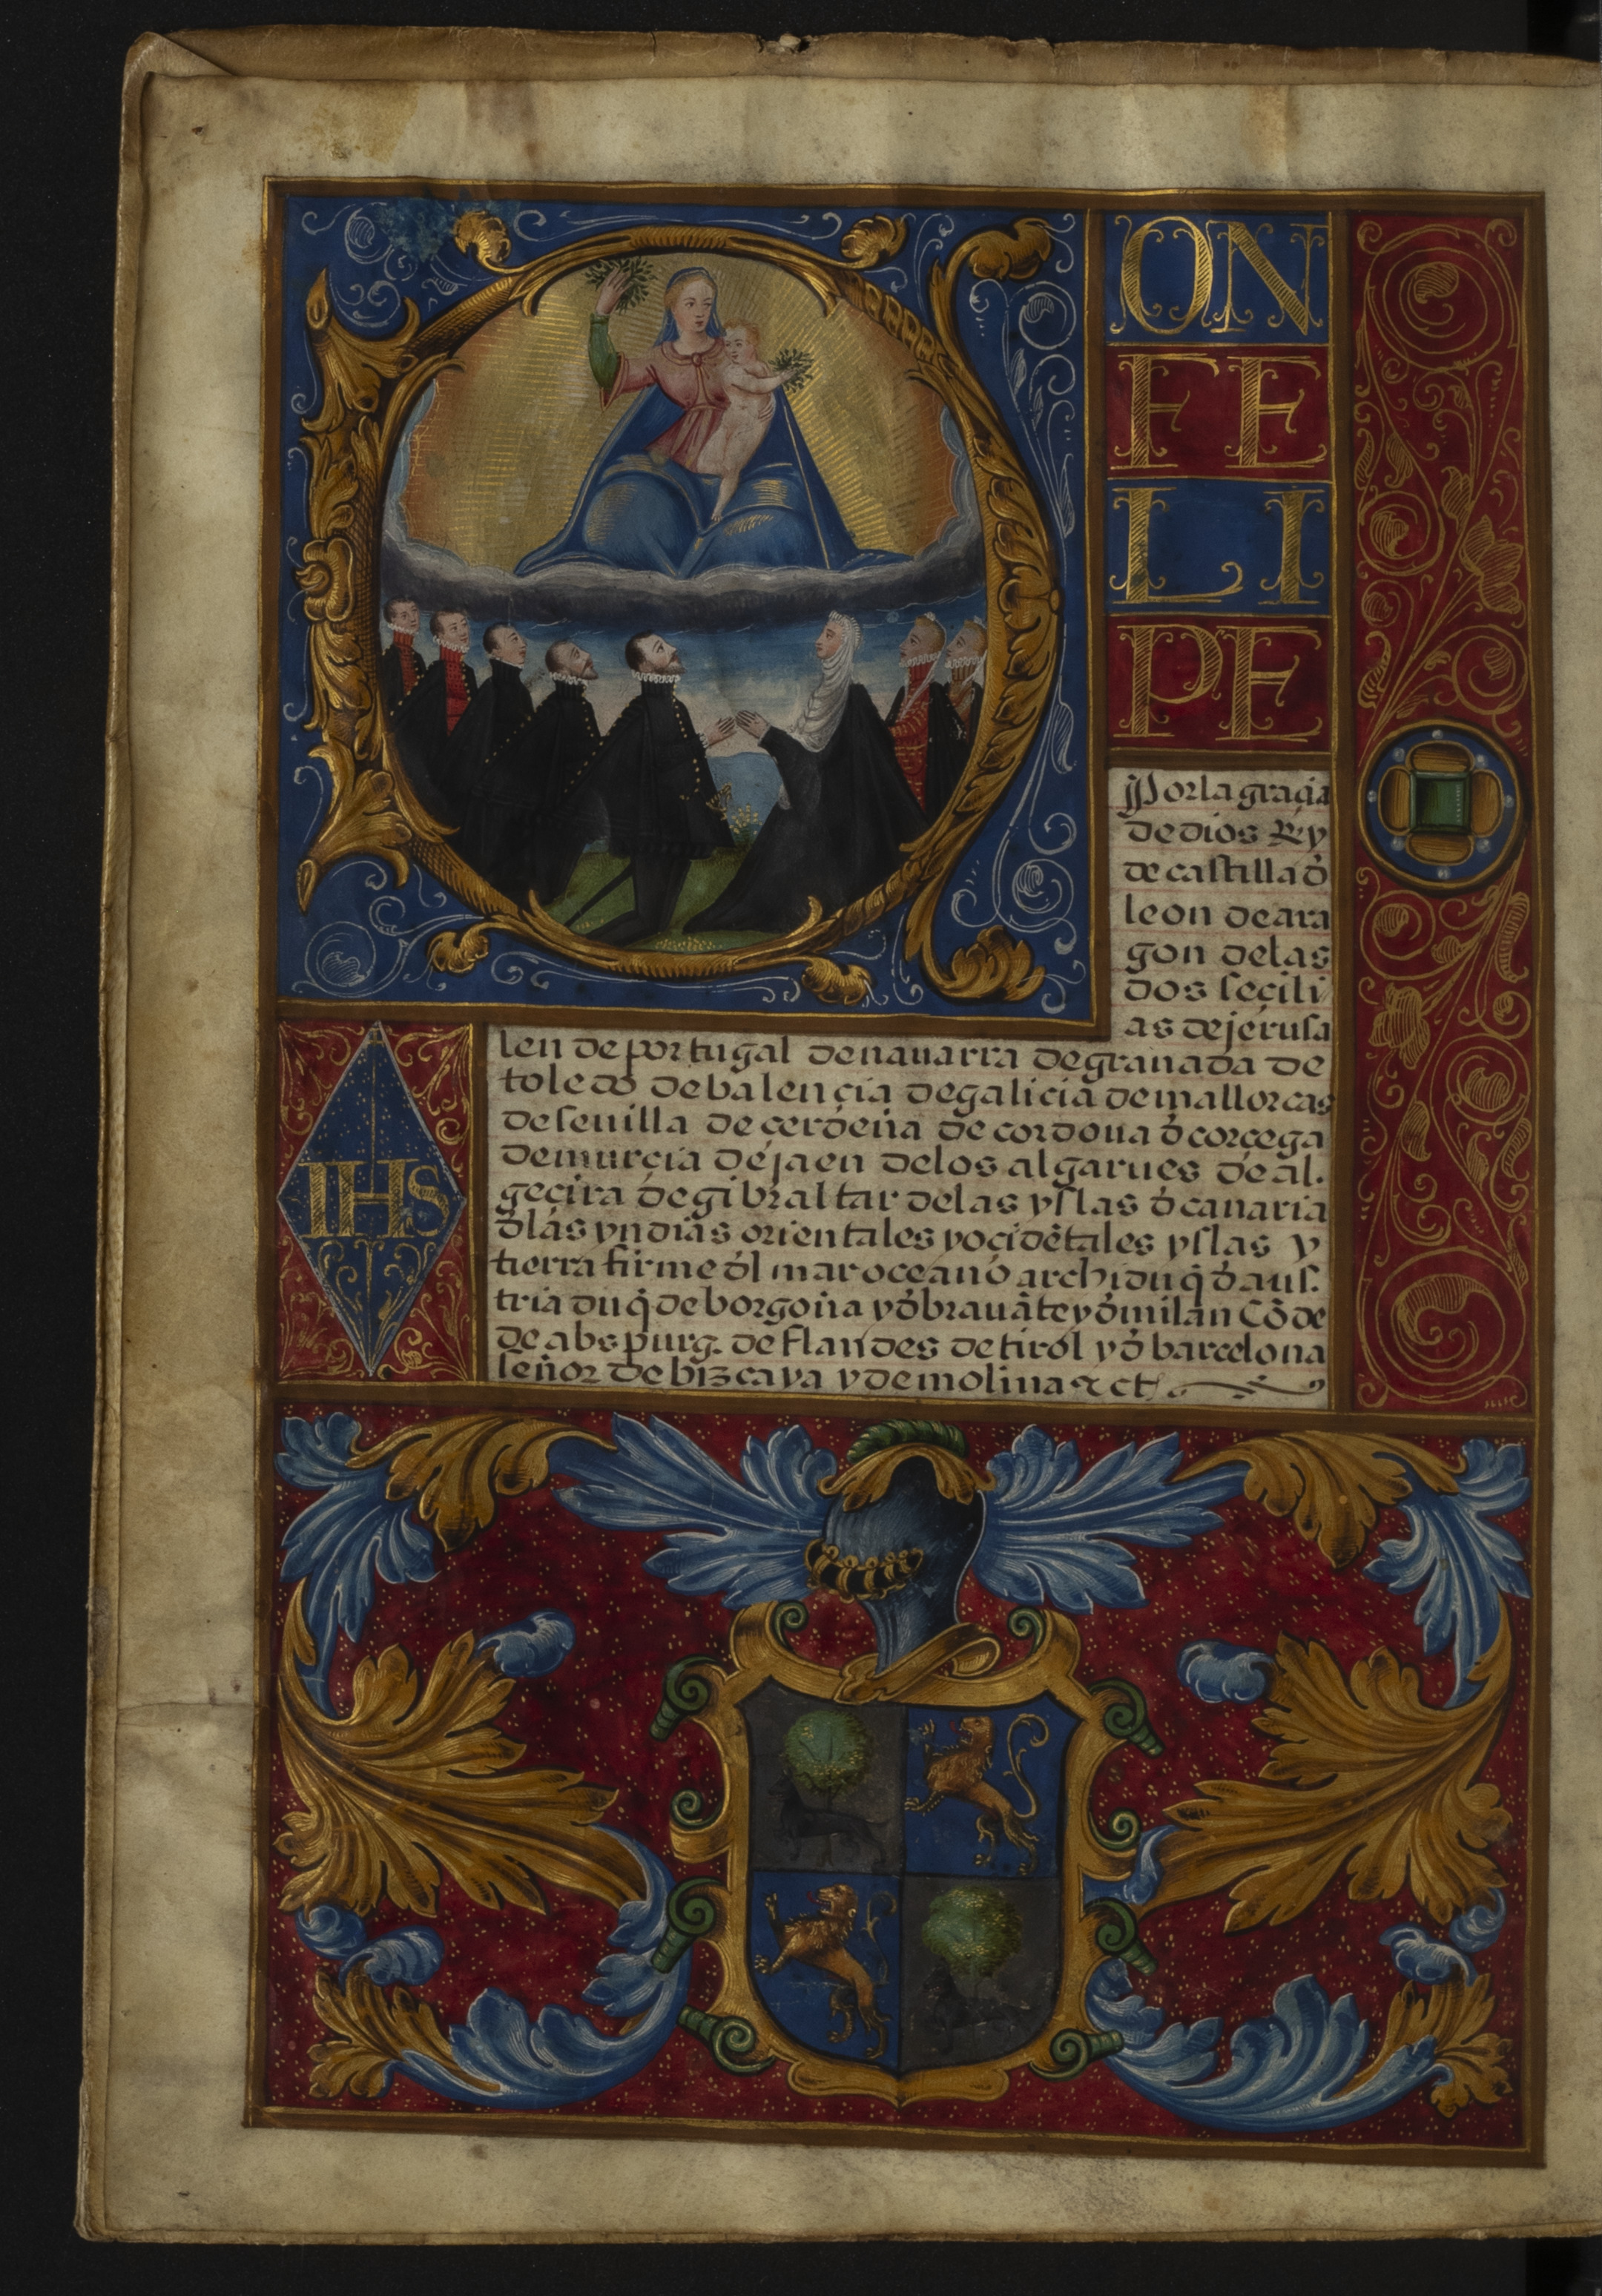 DON
FE
LI
PE
Por la graçia
de dios Rey
de castilla đ
leon de ara
gon de las
dos seçili
as de jerusa
len de portugal de nauarra de granada de
toledo de balençia de galicia de mallorcas
de seuilla de cerdeña de cordoua đ corcega
de murçia de jaen de los algarues de al.
geçira de gibraltar de las yslas đ canaria
đ las yndias orientales y oçidētales yslas y
tierra firme đl mar oceano archiduq̄ đ aus.
tria duq̄ de borgoña y đ brauāte y đ milan Cōde
de abspurg. de flandes de tirol y đ barcelona
señor de bizcaya y de molina & ct
IHS